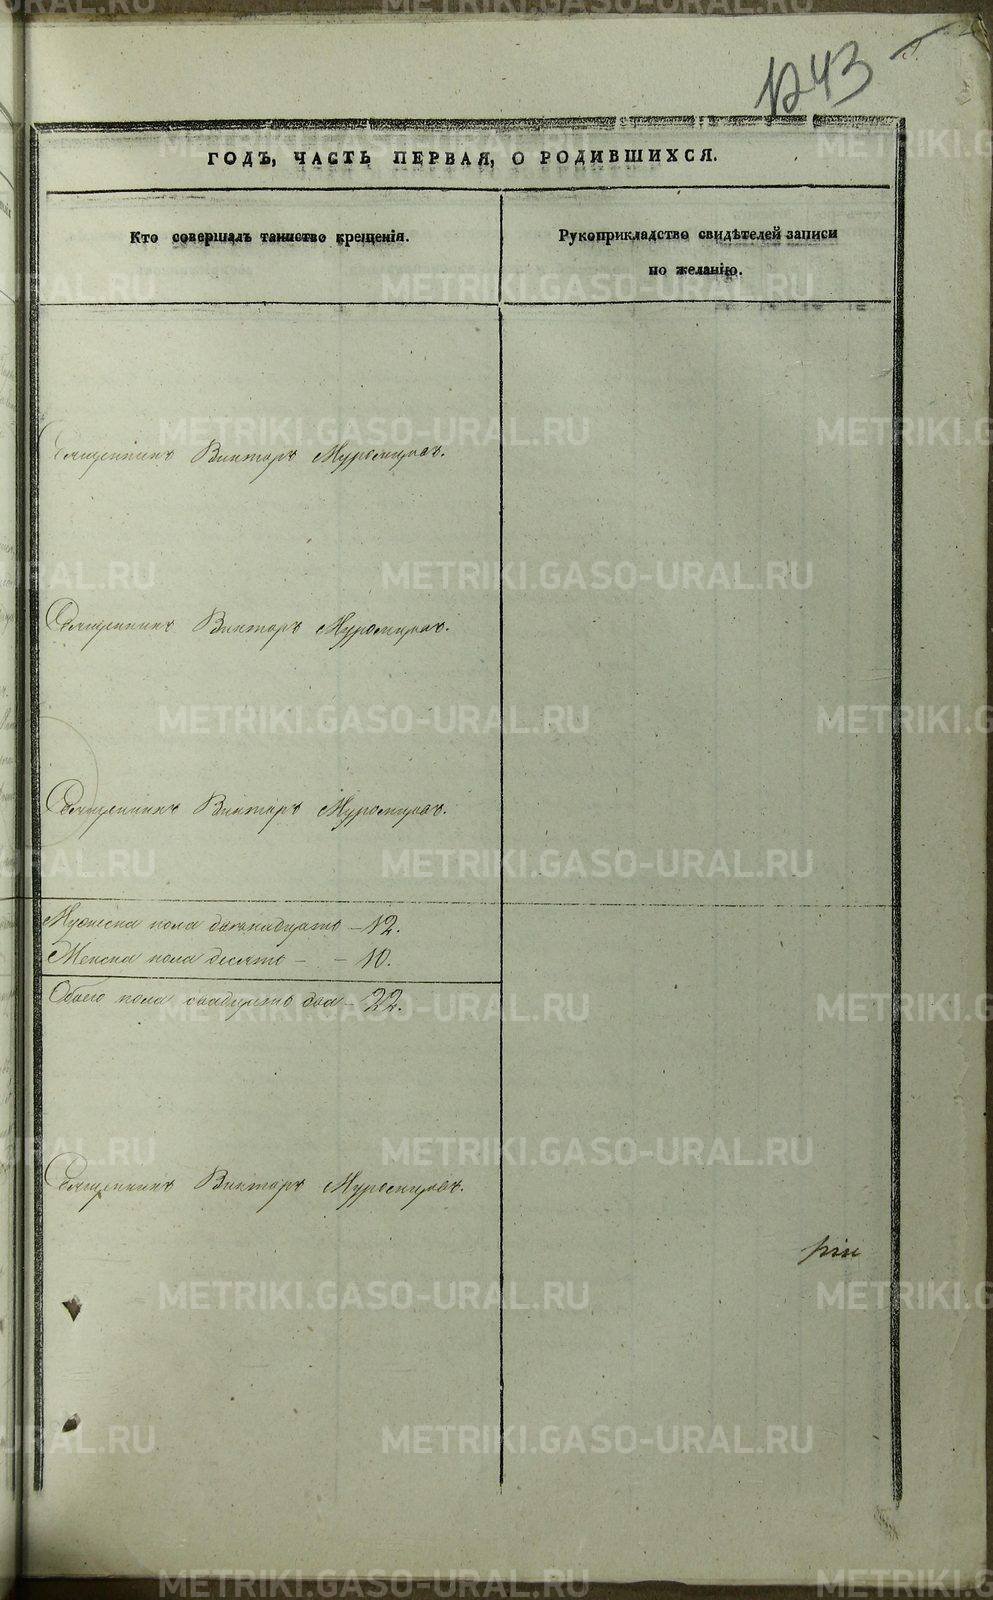 1243
ГОДЪ, ЧАСТЬ ПЕРВАЯ, О РОДИВШИХСЯ.
Кто совершалъ таинство крещенія.
Рукоприкладство свидѣтелей записи
по желанію.
Священникъ Викторъ Муромцовъ.
Священникъ Викторъ Муромцовъ.
Священникъ Викторъ Муромцовъ.
Мужеска пола двѣнадцать – 12.
Женска пола десять – – 10.
Обоего пола двадцать два – 22.
Священникъ Викторъ Муромцовъ.
METRIKI.GASO-URAL.RU